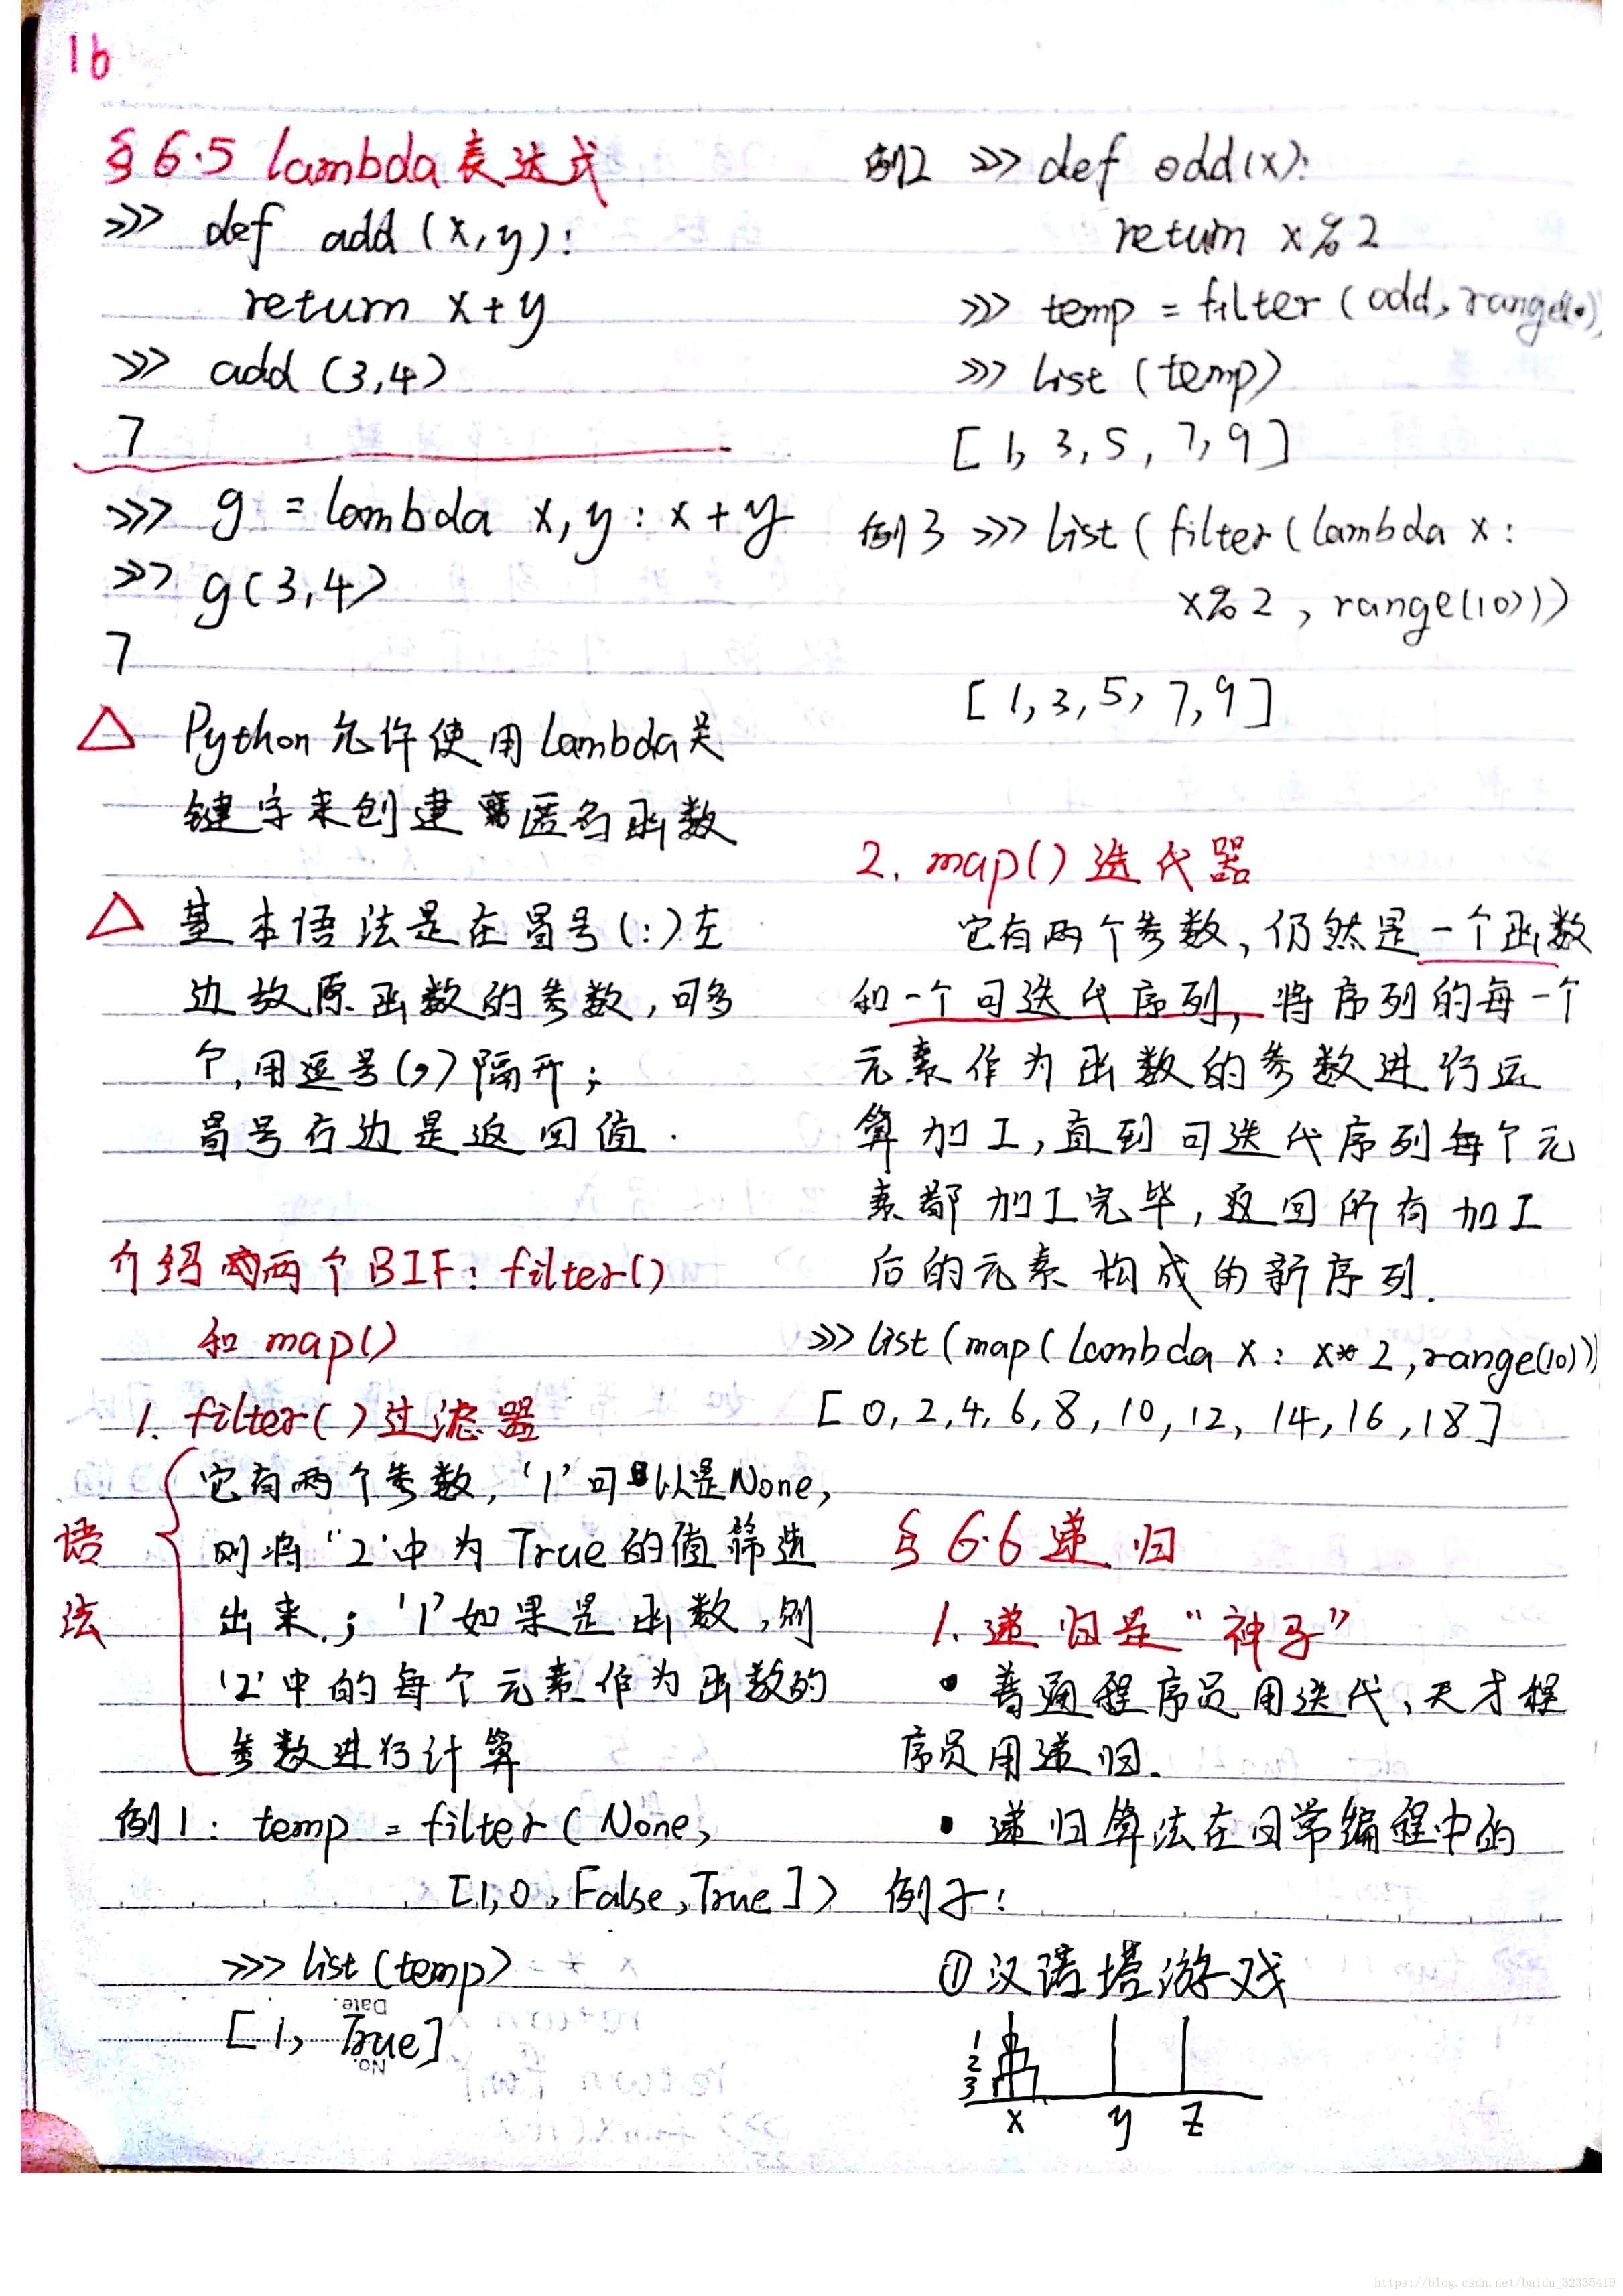 16
§6.5 lambda表达式
>>> def add(x,y):
return x+y
>>> add(3,4)
7
>>> g = lambda x,y: x+y
>>> g(3,4)
7
△ Python允许使用lambda关
键字来创建匿名函数
△ 基本语法是在冒号(:)左
边放原函数的参数,可多
个,用逗号(,)隔开;
冒号右边是返回值.
介绍两个BIF: filter()
和 map()
1. filter()过滤器
语法
它有两个参数, '1'可以是None,
则将'2'中为 True 的值筛选
出来; '1'如果是函数,则
'2'中的每个元素作为函数的
参数进行计算
例1: temp = filter(None,
[1,0,False,True])
>>> list(temp)
[1, True]
Date.
No.
例2 >>> def odd(x):
return x%2
>>> temp = filter(odd, range(10))
>>> list(temp)
[1, 3, 5, 7, 9]
例3 >>> list(filter(lambda x:
x%2, range(10)))
[1,3,5,7,9]
2. map()迭代器
它有两个参数,仍然是一个函数
和一个可迭代序列,将序列的每一个
元素作为函数的参数进行运
算加工,直到可迭代序列每个元
素都加工完毕,返回所有加工
后的元素构成的新序列.
>>> list(map(lambda x: x*2,range(10)))
[0,2,4,6,8,10,12,14,16,18]
§6.6 递归
1. 递归是“神马”
• 普通程序员用迭代、天才程
序员用递归.
• 递归算法在日常编程中的
例子:
①汉诺塔游戏
1
2
3
x y z
https://blog.csdn.net/baidu_32335419